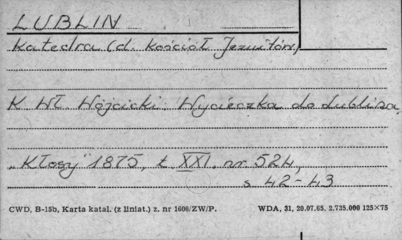 LUBLIN
Katedra (d. Kościół Jezuitów)
K Wł. Wójcicki. Wycieczka do Lublina,
„Kłosy" 1875, t XXI, nr 524,
s 42-43
CWD, B-15b, Karta katal. (z liniat.) z. nr 1606/ZW/P. WDA, 31, 20.07.65, 2.735.000 125×75